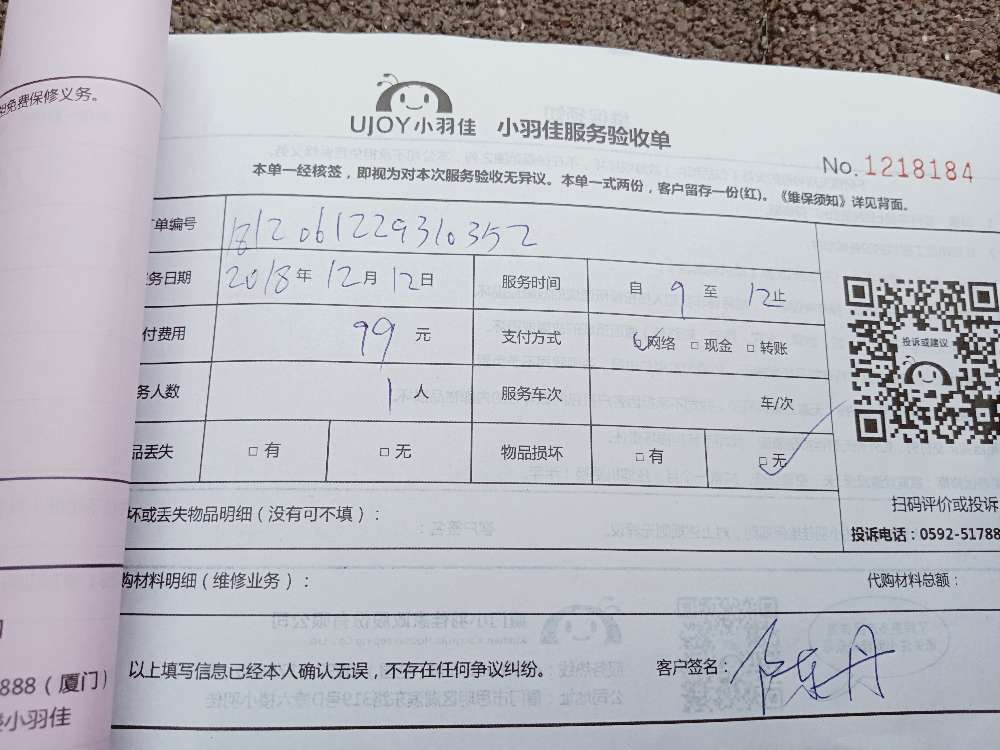 免费保修义务。
UJOY小羽佳 小羽佳服务验收单
No. 1218184
本单一经核签，即视为对本次服务验收无异议。本单一式两份，客户留存一份(红)。《维保须知》详见背面。
单编号 1812061229310352
务日期 2018年 12月 12日 服务时间 自 9 至 12止
付费用 99 元 支付方式 □网络 □现金 □转账
投诉或建议
务人数 1 人 服务车次 车/次
品丢失 □有 □无 物品损坏 □有 □无
扫码评价或投诉
坏或丢失物品明细（没有可不填）：
投诉电话：0592-51788
购材料明细（维修业务）： 代购材料总额：
以上填写信息已经本人确认无误，不存在任何争议纠纷。 客户签名：
888（厦门）
小羽佳